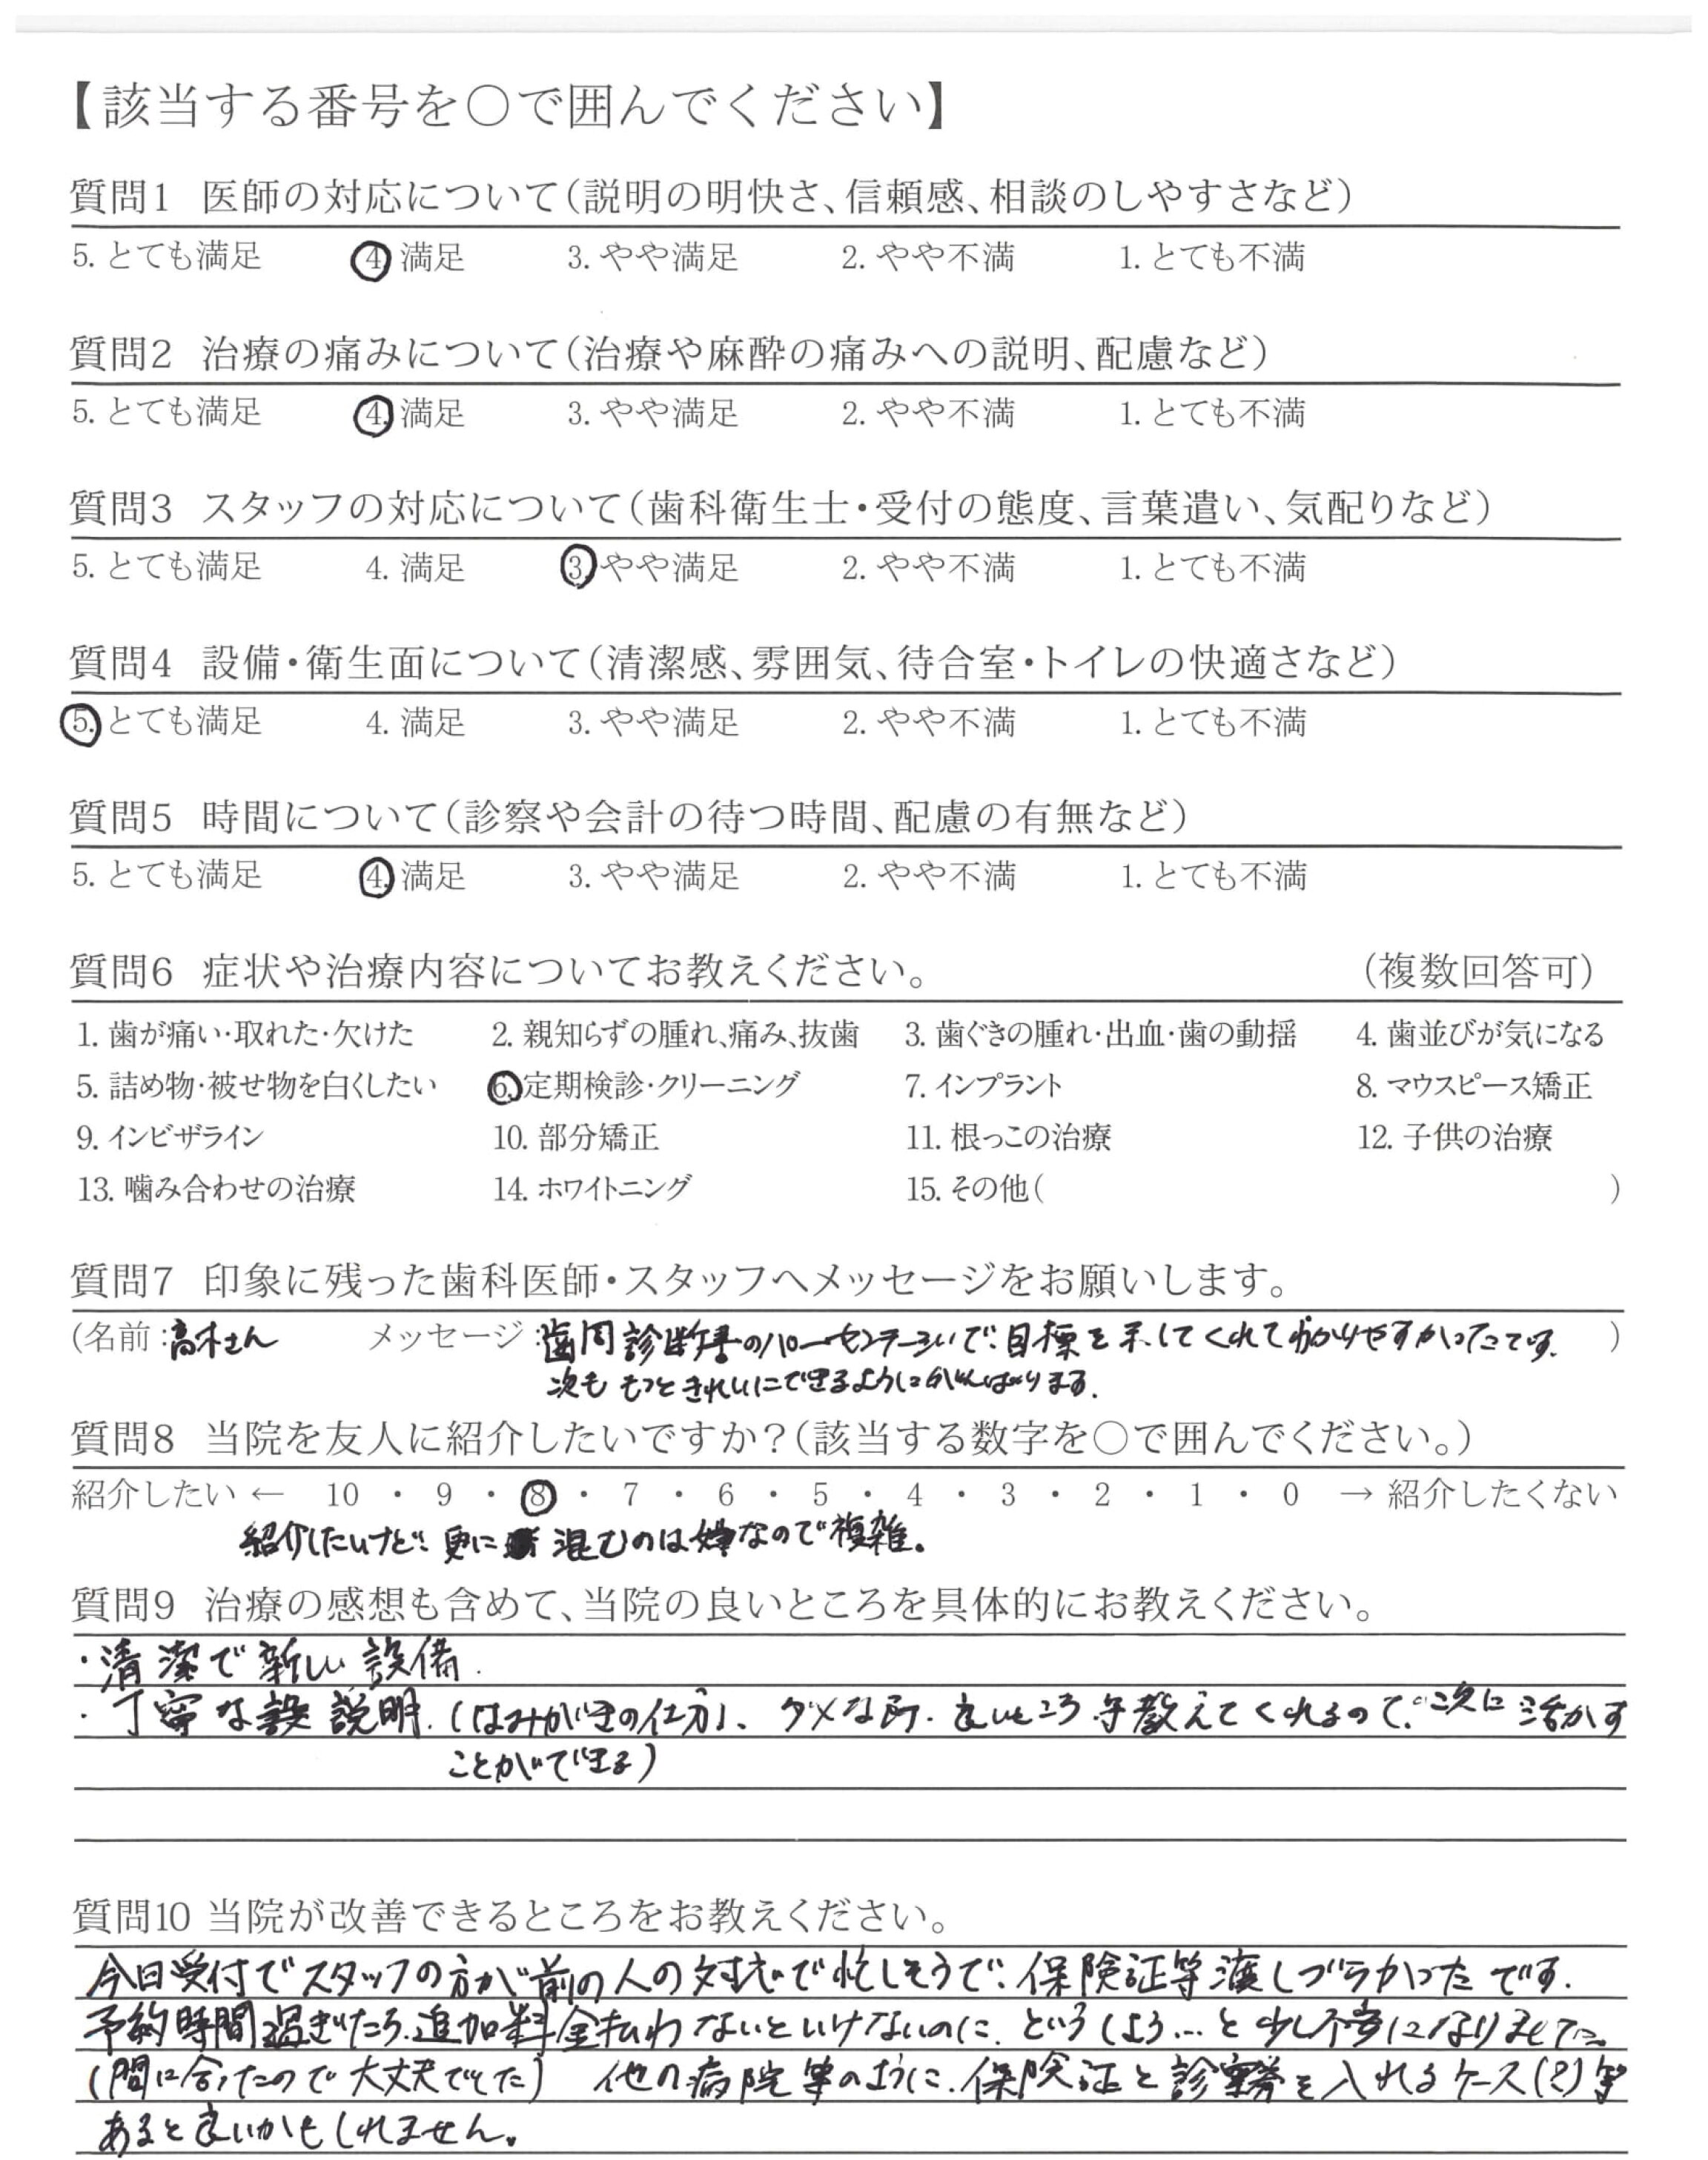 【該当する番号を○で囲んでください】
質問1 医師の対応について(説明の明快さ、信頼感、相談のしやすさなど)
5. とても満足 4. 満足 3. やや満足 2. やや不満 1. とても不満
質問2 治療の痛みについて(治療や麻酔の痛みへの説明、配慮など)
5. とても満足 4. 満足 3. やや満足 2. やや不満 1. とても不満
質問3 スタッフの対応について(歯科衛生士・受付の態度、言葉遣い、気配りなど)
5. とても満足 4. 満足 3. やや満足 2. やや不満 1. とても不満
質問4 設備・衛生面について(清潔感、雰囲気、待合室・トイレの快適さなど)
5. とても満足 4. 満足 3. やや満足 2. やや不満 1. とても不満
質問5 時間について(診察や会計の待つ時間、配慮の有無など)
5. とても満足 4. 満足 3. やや満足 2. やや不満 1. とても不満
質問6 症状や治療内容についてお教えください。 (複数回答可)
1. 歯が痛い・取れた・欠けた 2. 親知らずの腫れ、痛み、抜歯 3. 歯ぐきの腫れ・出血・歯の動揺 4. 歯並びが気になる
5. 詰め物・被せ物を白くしたい 6. 定期検診・クリーニング 7. インプラント 8. マウスピース矯正
9. インビザライン 10. 部分矯正 11. 根っこの治療 12. 子供の治療
13. 噛み合わせの治療 14. ホワイトニング 15. その他( )
質問7 印象に残った歯科医師・スタッフへメッセージをお願いします。
(名前:高木さん メッセージ:歯周診断書のパーセンテージで目標を示してくれてわかりやすかったです。 )
次も もっときれいにできるようにがんばります。
質問8 当院を友人に紹介したいですか?(該当する数字を○で囲んでください。)
紹介したい ← 10 ・ 9 ・ 8 ・ 7 ・ 6 ・ 5 ・ 4 ・ 3 ・ 2 ・ 1 ・ 0 → 紹介したくない
紹介したいけど、更に 混むのは嫌なので複雑。
質問9 治療の感想も含めて、当院の良いところを具体的にお教えください。
・清潔で新しい設備.
・丁寧な 説明.(はみがきの仕方)、ダメな所、良いところ等教えてくれるので、次に活かす
ことができる)
質問10 当院が改善できるところをお教えください。
今日受付でスタッフの方が前の人の対応で忙しそうで、保険証等渡しづらかったです.
予約時間過ぎたら、追加料金払わないといけないのに、どうしよう…と少し不安になりました
(間に合ったので大丈夫でした) 他の病院等のように、保険証と診察券を入れるケース(?)等
あると良いかもしれません。